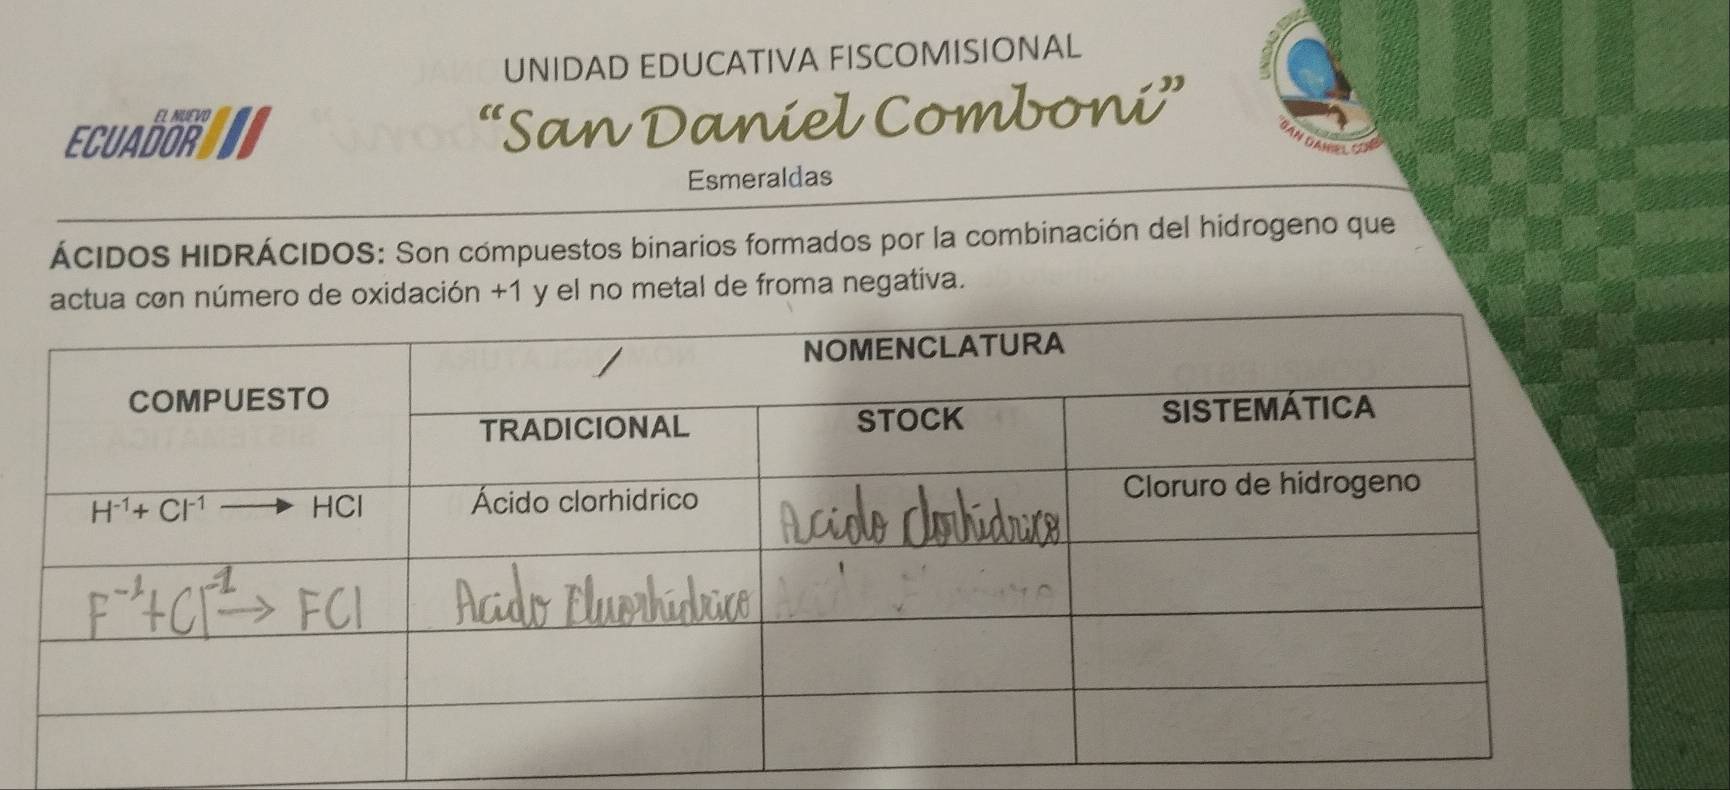 UNIDAD EDUCATIVA FISCOMISIONAL
EL NUEVO
ECUADOR
“San Daniel Comboni”
Esmeraldas
ÁCIDOS HIDRÁCIDOS: Son compuestos binarios formados por la combinación del hidrogeno que
actua con número de oxidación +1 y el no metal de froma negativa.
COMPUESTO
NOMENCLATURA
TRADICIONAL STOCK SISTEMÁTICA
H⁻¹+ Cl⁻¹ → HCl Ácido clorhidrico Acido clorhidrico Cloruro de hidrogeno
F⁻¹+Cl⁻¹→ FCl Acido Fluorhidrico